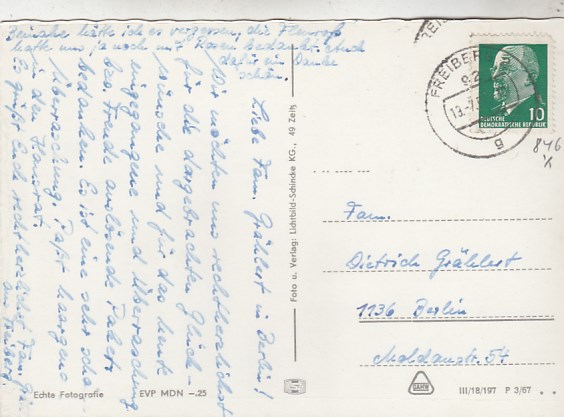 Beinahe hätte ich es vergessen, die
hatte uns ja noch mit Rosen bedankt. Auch
dafür ein Danke
schön.
Liebe Fam. Grählert in Berlin!
Wir möchten uns recht herzlichst
für die dargebrachten Glück-
wünsche und für das heute
eingegangene und Überraschung
bes. Freude auslösende Paket
bedanken. Es ist eine sehr schö
Überraschung. Paßt haargenau
in den Hausrat.
Es grüßt Euch recht herzlichst Fam.
aus Freiberg.
Echte Fotografie EVP MDN -.25
Foto u. Verlag: Lichtbild-Schincke KG., 49 Zeitz
FREIBERG
92
13.-7
g
10
DEUTSCHE
DEMOKRATISCHE REPUBLIK
846
Fam.
Dietrich Grählert
1136 Berlin
Moldaustr. 54
III/18/197 P 3/67